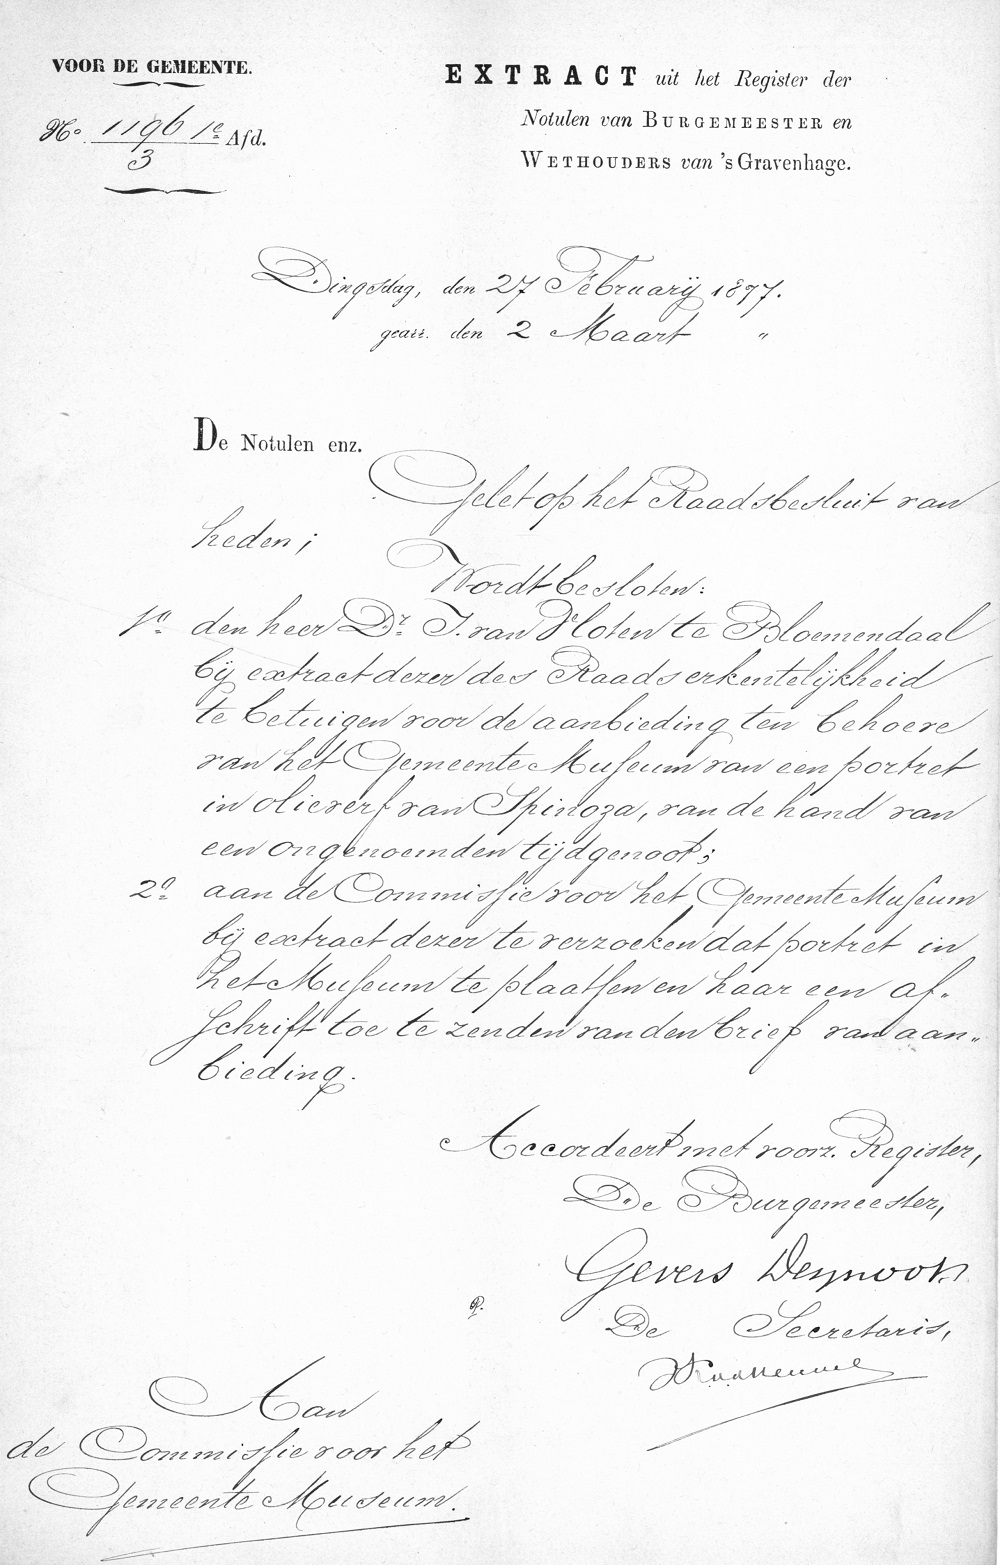 VOOR DE GEMEENTE.
No. 1196 1e Afd.
3
EXTRACT uit het Register der
Notulen van BURGEMEESTER en
WETHOUDERS van 's Gravenhage.
Dingsdag, den 27 Februarij 1877.
gearr. den 2 Maart "
De Notulen enz.
Gelet op het Raadsbesluit van
heden;
Wordt besloten:
1o. den heer Dr. J. van Vloten te Bloemendaal
bij extract dezer des Raads erkentelijkheid
te betuigen voor de aanbieding ten behoeve
van het Gemeente Museum van een portret
in olieverf van Spinoza, van de hand van
een ongenoemden tijdgenoot;
2o. aan de Commissie voor het Gemeente Museum
bij extract dezer te verzoeken dat portret in
het Museum te plaatsen en haar een af-
schrift toe te zenden van den brief van aan-
bieding.
Accordeert met voorz. Register,
De Burgemeester,
Gevers Deynoot
De Secretaris,
Aan
de Commissie voor het
Gemeente Museum.